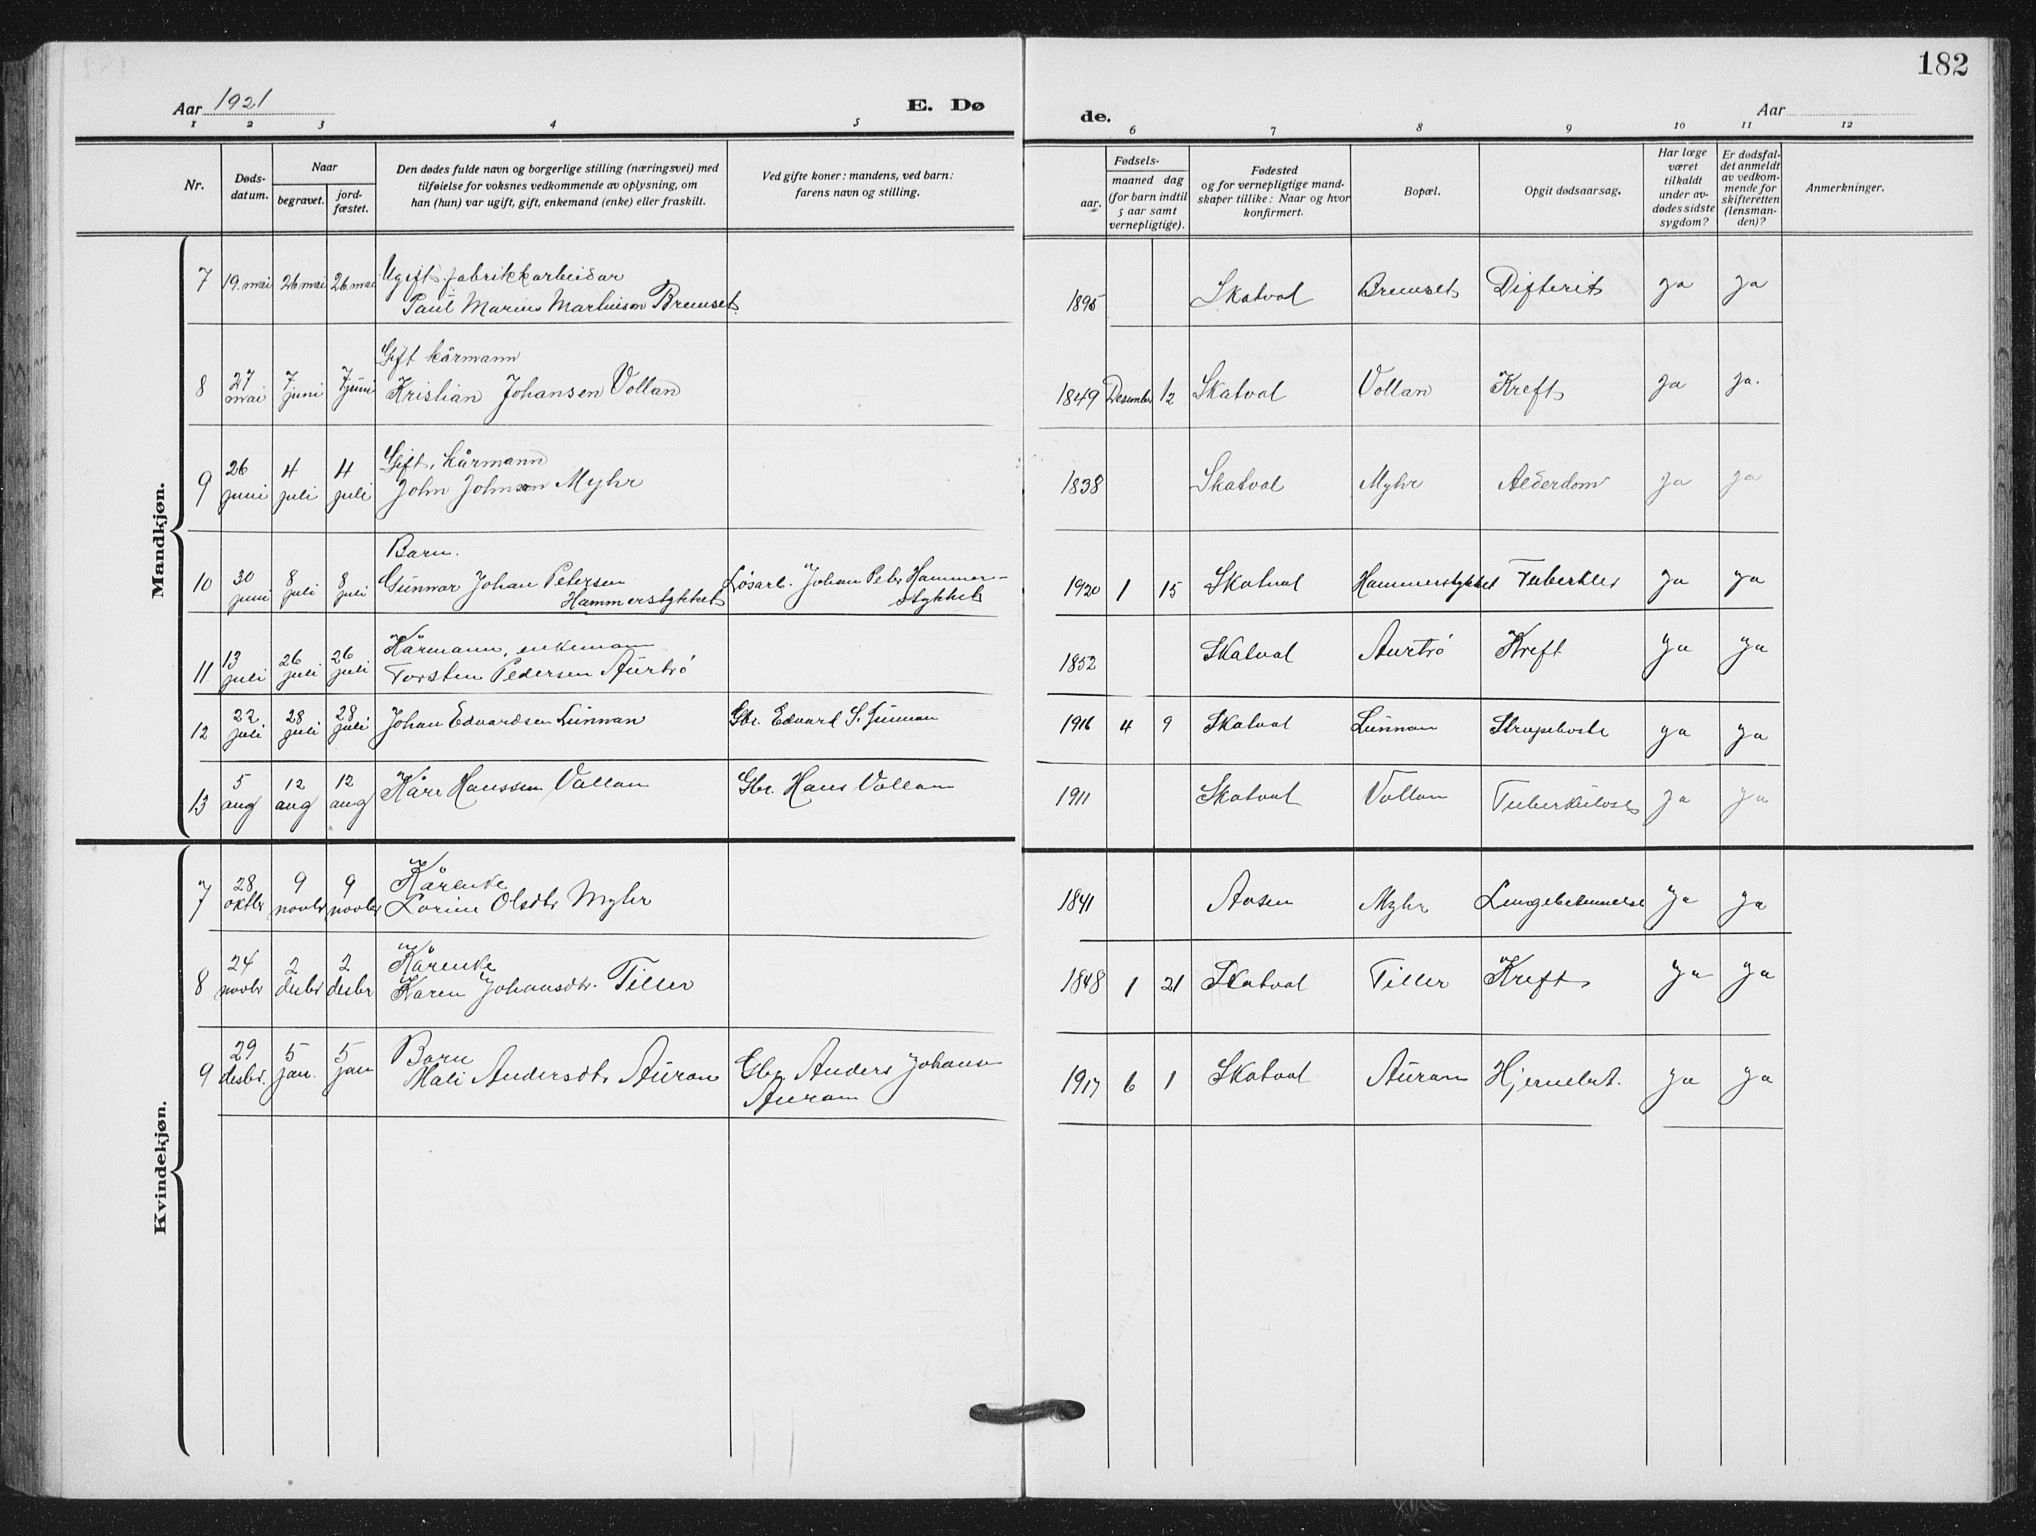 182
Aar 1921 E. Dø de. Aar
1 2 3 4 5 6 7 8 9 10 11 12
Nr.
Døds-
datum.
Naar
begravet.
jord-
fæstet.
Den dødes fulde navn og borgerlige stilling (næringsvei) med
tilføielse for voksnes vedkommende av oplysning, om
han (hun) var ugift, gift, enkemand (enke) eller fraskilt.
Ved gifte koner: mandens, ved barn:
farens navn og stilling.
Fødsels-
aar.
maaned dag
(for barn indtil
5 aar samt
vernepligtige).
Fødested
og for vernepligtige mand-
skaper tillike: Naar og hvor
konfirmert.
Bopæl.
Opgit dødsaarsag.
Har læge
været
tilkaldt
under av-
dødes sidste
sygdom?
Er dødsfal-
det anmeldt
av vedkom-
mende for
skifteretten
(lensman-
den)?
Anmerkninger.
Mandkjøn.
7 19. mai 26 mai 26 mai Ugift. fabrikkarbeidar
Paul Marius Martinson Bremset 1895 Skatval Bremset Difterit ja ja
8 27 mai 7 juni 7 juni Gift kårmann
Kristian Johansen Vollan 1849 Desember 12 Skatval Vollan Kreft ja ja.
9 26 juni 4 juli 4 juli Gift, kårmann
John Johnsen Myhr 1838 Skatval Myhr Alderdom ja ja
10 30 juni 8 juli 8 juli Barn.
Gunnar Johan Petersen Løsarb. Johan Peter Hammer-
Hammerstykket stykket 1920 1 15 Skatval Hammerstykket Tuberkler ja ja
11 13 juli 26 juli 26 juli Kårmann, enkeman
Torsten Pedersen Aurtrø 1852 Skatval Aurtrø Kreft ja ja
12 22 juli 28 juli 28 juli Johan Edvardsen Lunnan Gbr. Edvard S. Lunnan 1916 4 9 Skatval Lunnan Strupehoste ja ja
13 5 aug 12 aug 12 aug Kåre Hanssen Vollan Gbr. Hans Vollan 1911 Skatval Vollan Tuberkulose ja ja
Kvindekjøn.
7 28 oktbr 9 novbr 9 novbr Kårenke
Lorine Olsdtr Myhr 1841 Aasen Myhr Lungebetennelse ja ja
8 24 novbr 2 desbr 2 desbr Kårenke
Karen Johansdtr. Tiller 1848 1 21 Skatval Tiller Kreft ja ja
9 29 desbr. 5 jan. 5 jan Barn
Mali Andersdtr Auran Gbr. Anders Johansen
Auran 1917 6 1 Skatval Auran Hjernebet. ja ja